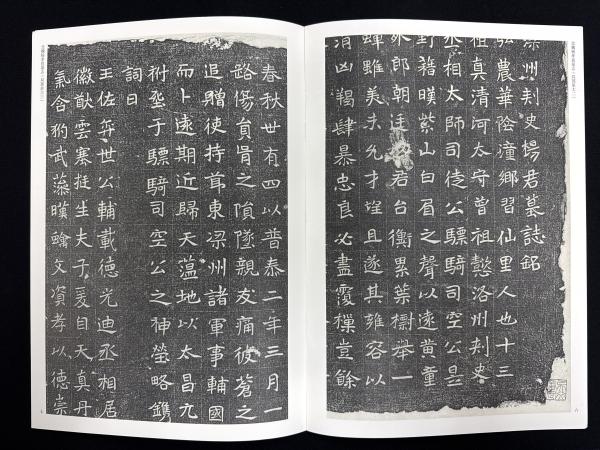 梁州刺史楊君墓誌銘
弘農華陰潼鄉習仙里人也十三
祖真清河太守曾祖懿洛州刺史
丞相太師司徒公驃騎司空公是
對籍暎紫山白眉之聲以遠黃童
外郎朝廷君台衡累葉槨舉一
蟬雖美未允才埕且遂其雍容以
凶羯肆暴忠良必盡霞樔豈餘
春秋廿有四以普泰二年三月一
路傷員脣之隕墜親友痛彼蒼之
追贈使持節東梁州諸軍事輔國
而卜遠期近歸天蕰地以太昌元
祔塟于驃騎司空公之神塋略鐫
詞曰
王佐弈世公輔載德光迪丞相居
徽猷雲寨挺生夫子爰自天真丹
氣含豹武藻暎文資孝以德崇